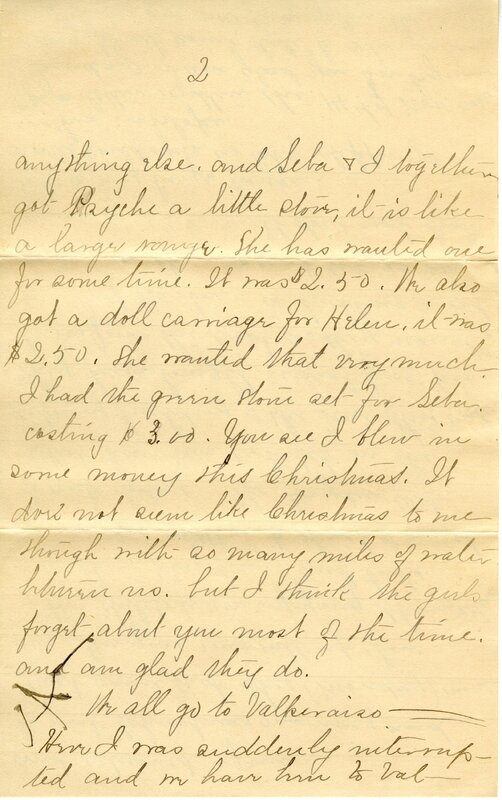 2
anything else. and Seba & I together
got Psyche a little stove, it is like
a larger range. She has wanted one
for some time. It was $2.50. We also
got a doll carriage for Helen, it was
$2.50. She wanted that very much.
I had the green stone set for Seba.
costing $3.00. You see I blew in
some money this Christmas. It
does not seem like Christmas to me
though with so many miles of water
between us. but I think the girls
forget about you most of the time.
and am glad they do.
We all go to Valperaiso —
Here I was suddenly interrup-
ted and we have been to Val-